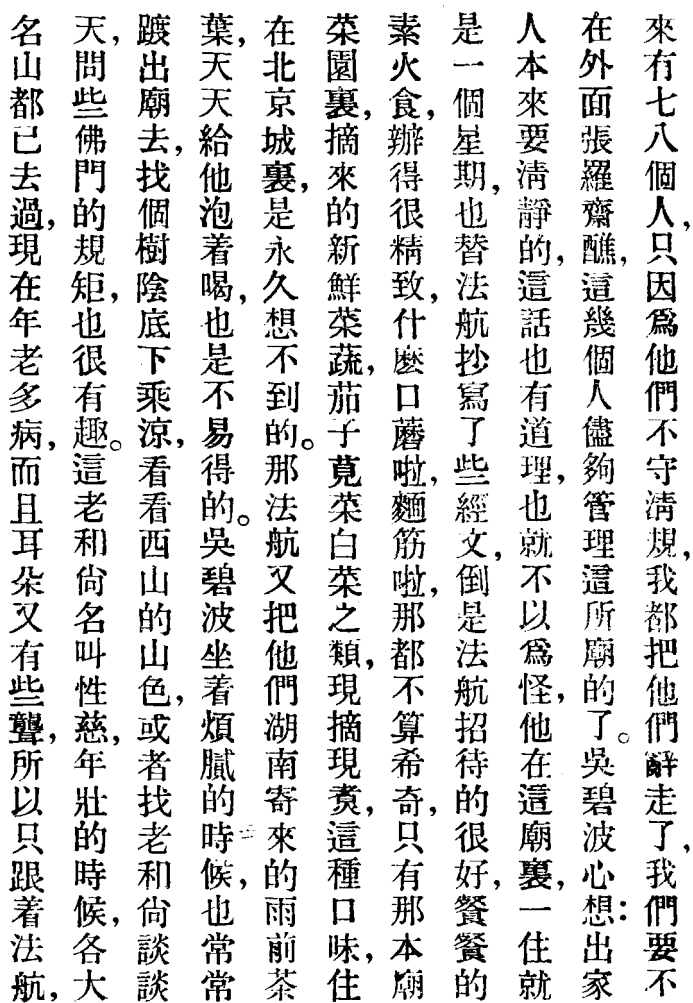 來有七八個人，只因爲他們不守清規，我都把他們辭走了，我們要不
在外面張羅齋醮，這幾個人儘夠管理這所廟的了。吳碧波心想：出家
人本來要清靜的，這話也有道理，也就不以爲怪，他在這廟裏，一住就
是一個星期，也替法航抄寫了些經文，倒是法航招待的很好，餐餐的
素火食，辦得很精致，什麽口蘑啦，麵筋啦，那都不算希奇，只有那本廟
菜園裏，摘來的新鮮菜蔬，茄子莧菜白菜之類，現摘現煑，這種口味，住
在北京城裏，是永久想不到的。那法航又把他們湖南寄來的雨前茶
葉，天天給他泡着喝，也是不易得的。吳碧波坐着煩膩的時候，也常常
踱出廟去，找個樹陰底下乘涼，看看西山的山色，或者找老和尙談談
天，問些佛門的規矩，也很有趣。這老和尙名叫性慈，年壯的時候，各大
名山都已去過，現在年老多病，而且耳朵又有些聾，所以只跟着法航，